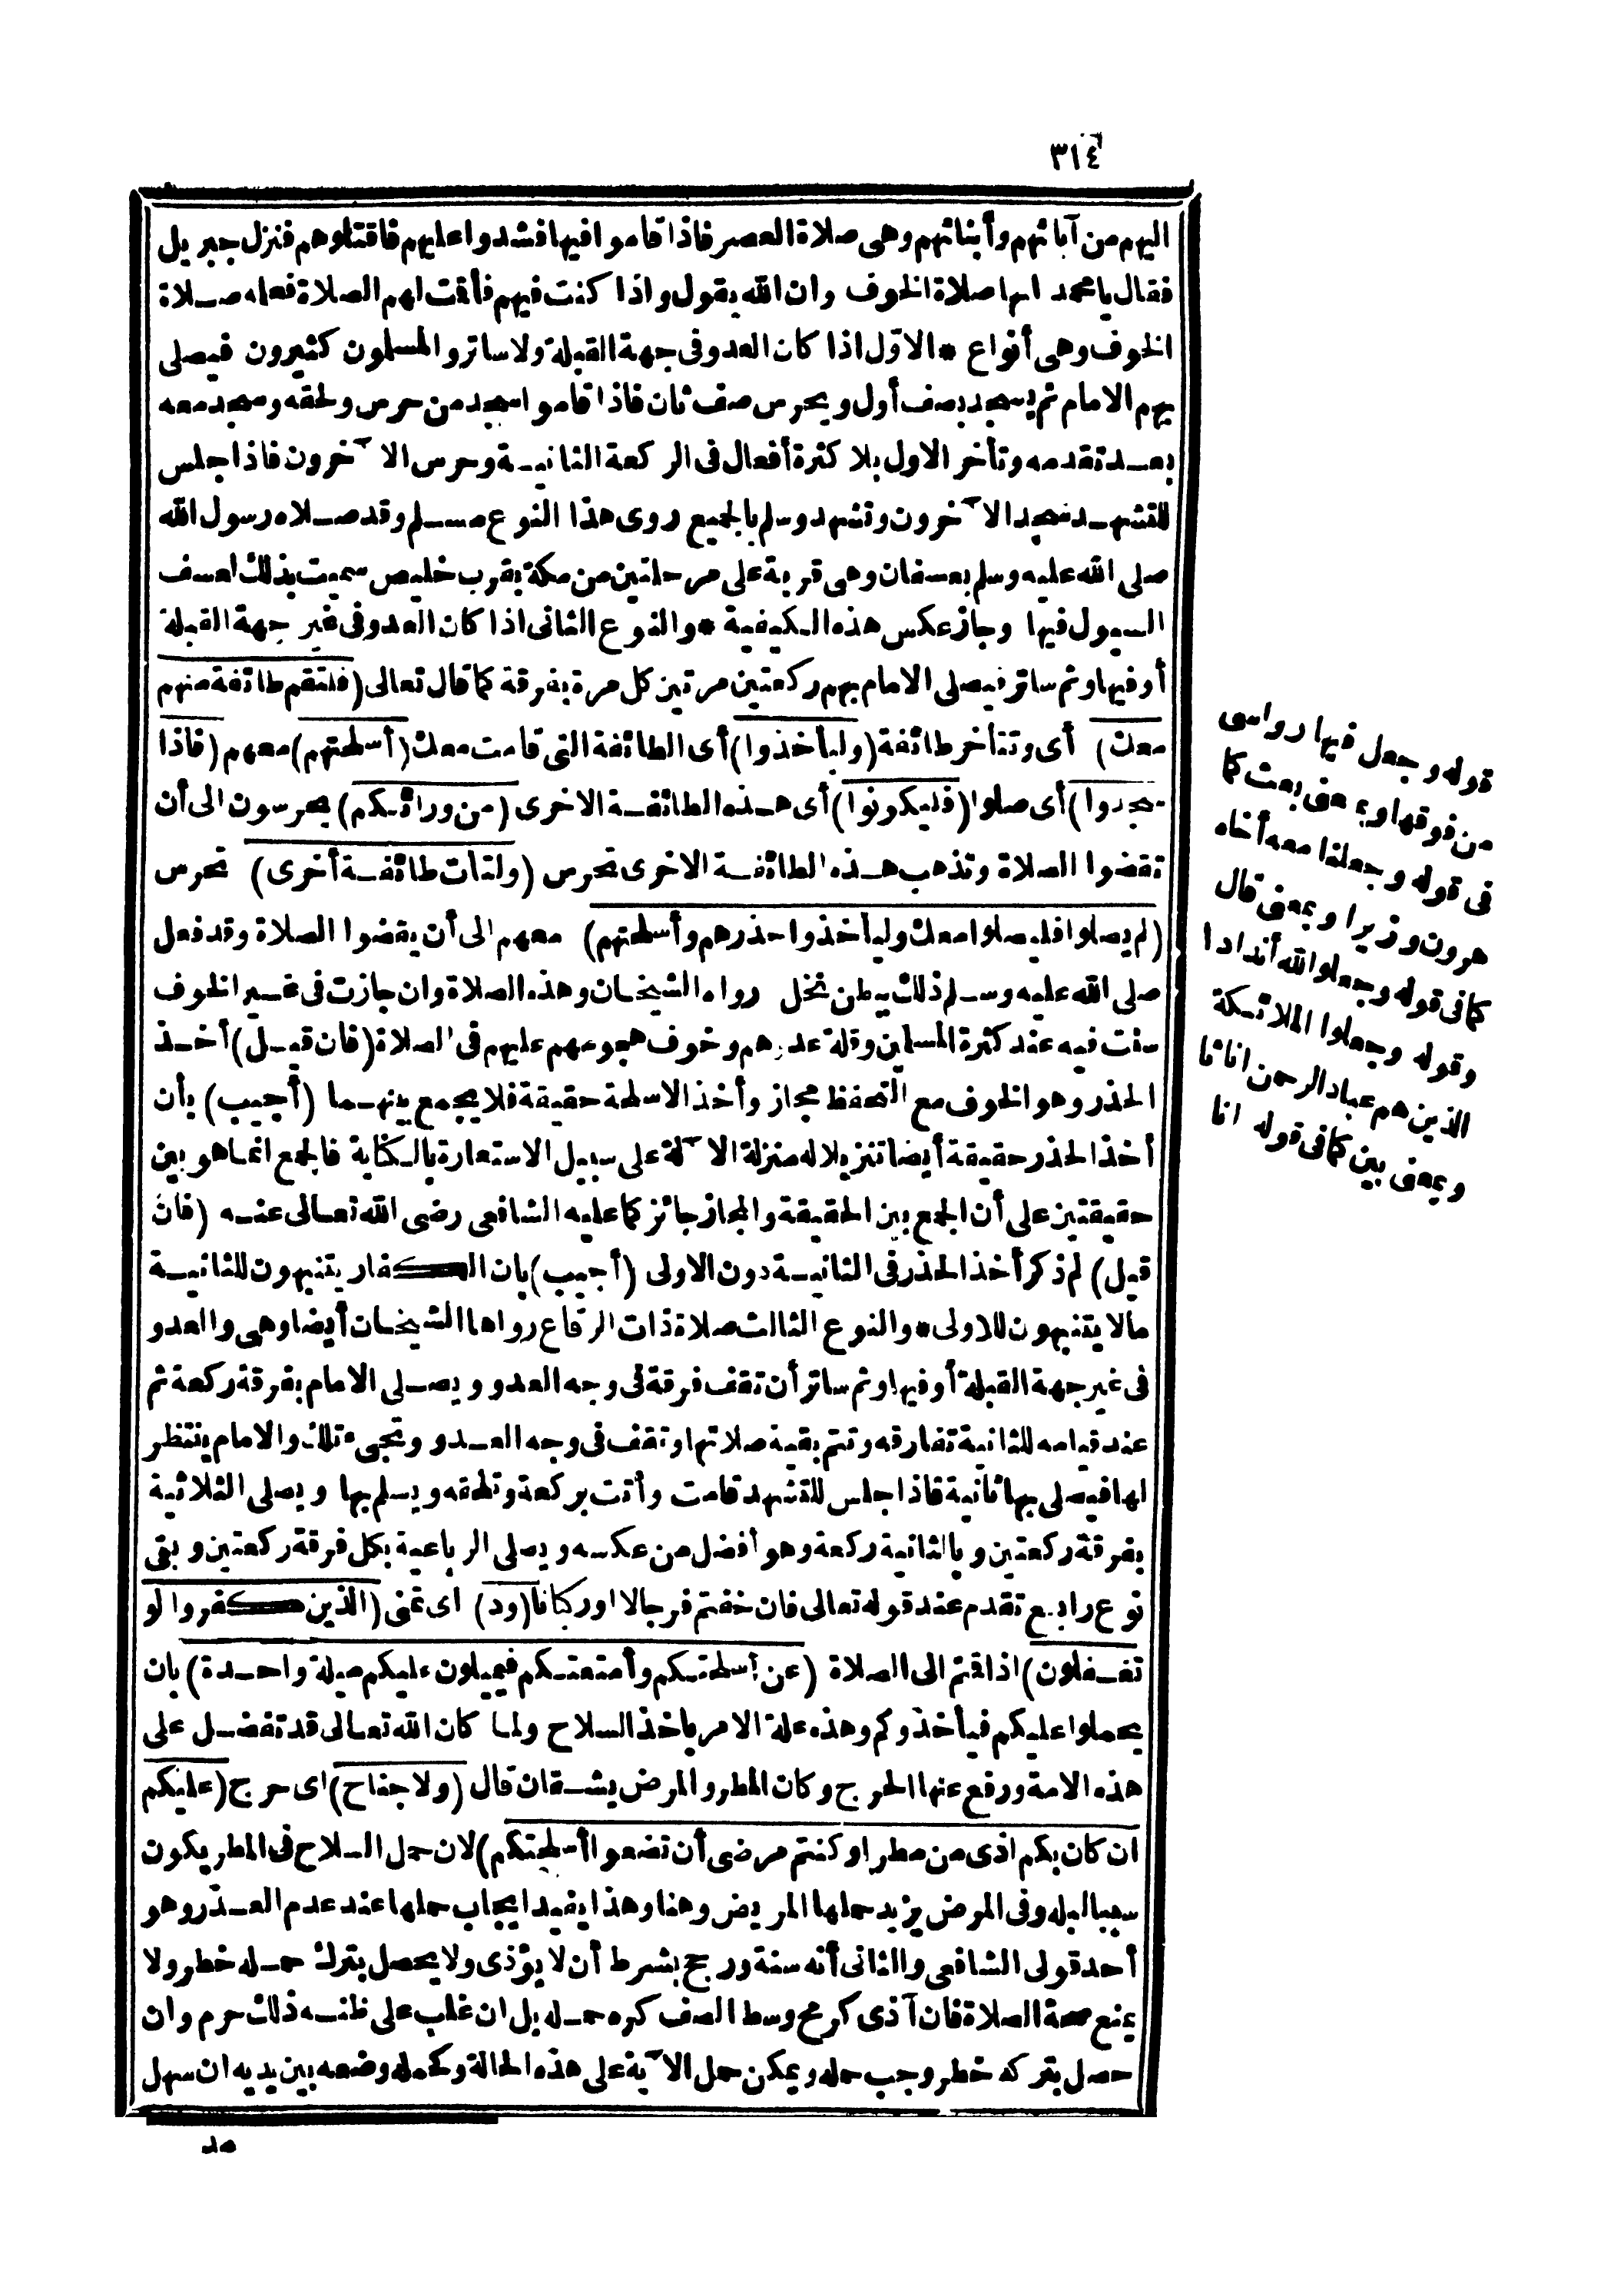 ٣١٤
اليهم من آبائهم وأبنائهم وهى صلاة العصر فاذا قاموا فيها فشدوا عليهم فاقتلوهم فنزل جبريل
فقال يا محمد انها صلاة الخوف وان الله يقول واذا كنت فيهم فأقمت لهم الصلاة فعله صلاة
الخوف وهى أنواع * الاوّل اذا كان العدو فى جهة القبلة ولا ساتر والمسلمون كثيرون فيصلى
بهم الامام ثم يسجد بصف أول ويحرس صف ثان فاذا قاموا سجد من حرس ولحقه وسجد معه
بعد تقدمه وتأخر الاول بلا كثرة أفعال فى الركعة الثانية وحرس الآخرون فاذا جلس
للتشهد سجد الآخرون وتشهد وسلم بالجميع روى هذا النوع مسلم وقد صلاه رسول الله
صلى الله عليه وسلم بعسفان وهى قرية على مرحلتين من مكة بقرب خليص سميت بذلك لعسف
السيول فيها وجاز عكس هذه الكيفية * والنوع الثانى اذا كان العدو فى غير جهة القبلة
أو فيها وثم ساتر فيصلى الامام بهم ركعتين مرتين كل مرة بفرقة كما قال تعالى (فلتقم طائفة منهم
معك) أى وتتأخر طائفة (وليأخذوا) أى الطائفة التى قامت معك (أسلحتهم) معهم (فاذا
سجدوا) أى صلوا (فليكونوا) أى هذه الطائفة الاخرى (من ورائكم) يحرسون الى أن
تقضوا الصلاة وتذهب هذه الطائفة الاخرى تحرس (ولتأت طائفة أخرى) تحرس
(لم يصلوا فليصلوا معك وليأخذوا حذرهم وأسلحتهم) معهم الى أن يقضوا الصلاة وقد فعل
صلى الله عليه وسلم ذلك ببطن نخل رواه الشيخان وهذه الصلاة وان جازت فى غير الخوف
سنت فيه عند كثرة المسلمين وقلة عدوهم وخوف هجومهم عليهم فى الصلاة (فان قيل) أخذ
الحذر وهو الخوف مع التحفظ مجاز وأخذ الاسلحة حقيقة فلا يجمع بينهما (أجيب) بأن
أخذ الحذر حقيقة أيضا تنزيلا له منزلة الآلة على سبيل الاستعارة بالكناية فالجمع انما هو بين
حقيقتين على أن الجمع بين الحقيقة والمجاز جائز كما عليه الشافعى رضى الله تعالى عنه (فان
قيل) لم ذكر أخذ الحذر فى الثانية دون الاولى (أجيب) بان الكفار يتنبهون للثانية
مالا يتنبهون للاولى * والنوع الثالث صلاة ذات الرقاع رواها الشيخان أيضا وهى والعدو
فى غير جهة القبلة أو فيها وثم ساتر أن تقف فرقة فى وجه العدو ويصلى الامام بفرقة ركعة ثم
عند قيامه للثانية تفارقه وتتم بقية صلاتها وتقف فى وجه العدو وتجىء تلك والامام ينتظر
لها فيصلى بها ثانية فاذا جلس للتشهد قامت وأتت بركعة وتلحقه ويسلم بها ويصلى الثلاثية
بفرقة ركعتين وبالثانية ركعة وهو أفضل من عكسه ويصلى الرباعية بكل فرقة ركعتين وبقى
نوع رابع تقدم عند قوله تعالى فان خفتم فرجالا اوركبانا (ود) اى تمنى (الذين كفروا لو
تغفلون) اذا قمتم الى الصلاة (عن أسلحتكم وأمتعتكم فيميلون عليكم ميلة واحدة) بان
يحملوا عليكم فيأخذوكم وهذه علة الامر باخذ السلاح ولما كان الله تعالى قد تفضل على
هذه الامة ورفع عنها الحرج وكان المطر والمرض يشقان قال (ولا جناح) اى حرج (عليكم
ان كان بكم اذى من مطر او كنتم مرضى أن تضعوا أسلحتكم) لان حمل السلاح فى المطر يكون
سببا لبله وفى المرض يزيد حملها المريض وهنا وهذا يفيد ايجاب حملها عند عدم العذر وهو
أحد قولى الشافعى والثانى أنه سنة ورجح بشرط أن لا يؤذى ولا يحصل بترك حمله خطر ولا
يمنع صحة الصلاة فان آذى كرمح وسط الصف كره حمله بل ان غلب على ظنه ذلك حرم وان
حصل بتركه خطر وجب حمله ويمكن حمل الآية على هذه الحالة وكحمله وضعه بين يديه ان سهل
مد
قوله وجعل فيها رواسى
من فوقها وبمعنى بعث كما
فى قوله وجعلنا معه أخاه
هرون وزيرا وبمعنى قال
كما فى قوله وجعلوا لله أندادا
وقوله وجعلوا الملائكة
الذين هم عباد الرحمن اناثا
وبمعنى بين كما فى قوله انا